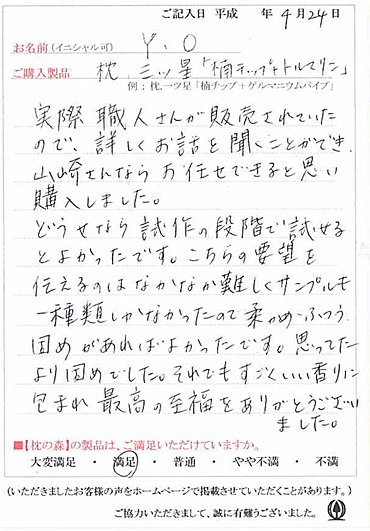 ご記入日 平成 年 4月24日
お名前(イニシャル可) Y.O
ご購入製品 枕、三ツ星「楠チップ+トルマリン」
例:枕、一ツ星「楠チップ+ゲルマニウムパイプ」
実際職人さんが販売されていた
ので、詳しくお話を聞くことができ、
山崎さんなら お任せできると思い
購入しました。
どうせなら 試作の段階で試せる
とよかったです。こちらの要望を
伝えるのはなかなか難しくサンプルも
一種類しかなかったので柔かめ・ふつう・
固めがあればよかったです。思ってた
より固めでした。それでもすごくいい香りに
包まれ 最高の至福をありがとうござい
ました。
■【枕の森】の製品は、ご満足いただけていますか。
大変満足 ・ 満足 ・ 普通 ・ やや不満 ・ 不満
(いただきましたお客様の声をホームページで掲載させていただくことがあります。)
ご協力いただきまして、誠に有難うございました。